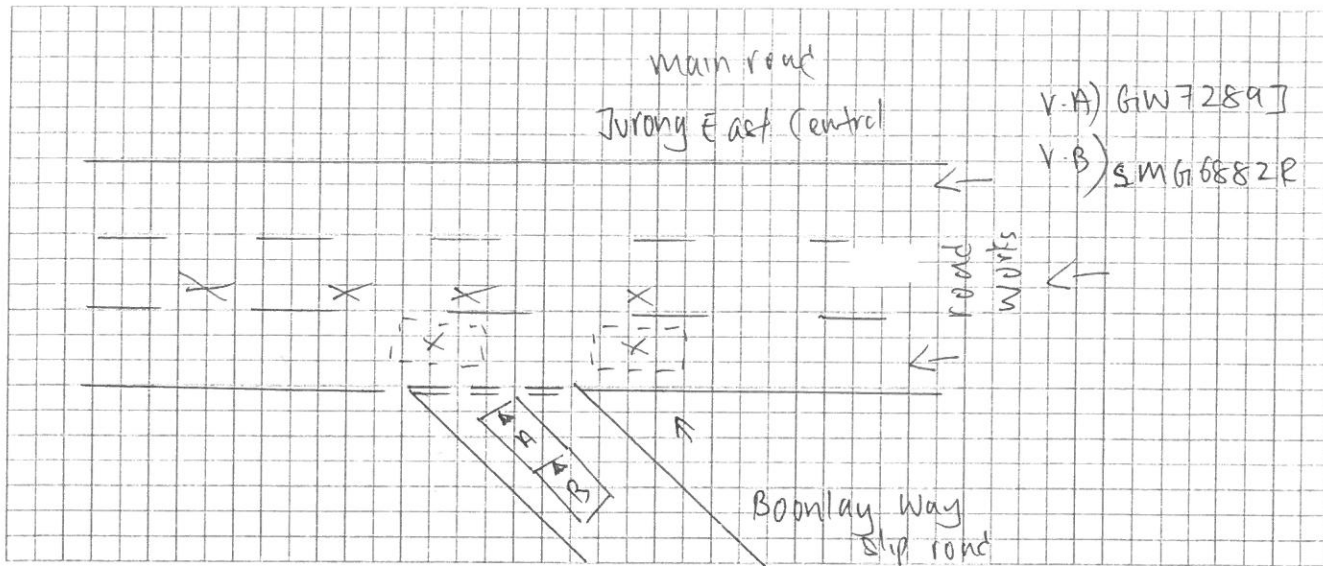 main road
Jurong East Central
V.A) GW7289J
V.B) SMG6882R
road
works
A
B
Boonlay Way
slip road